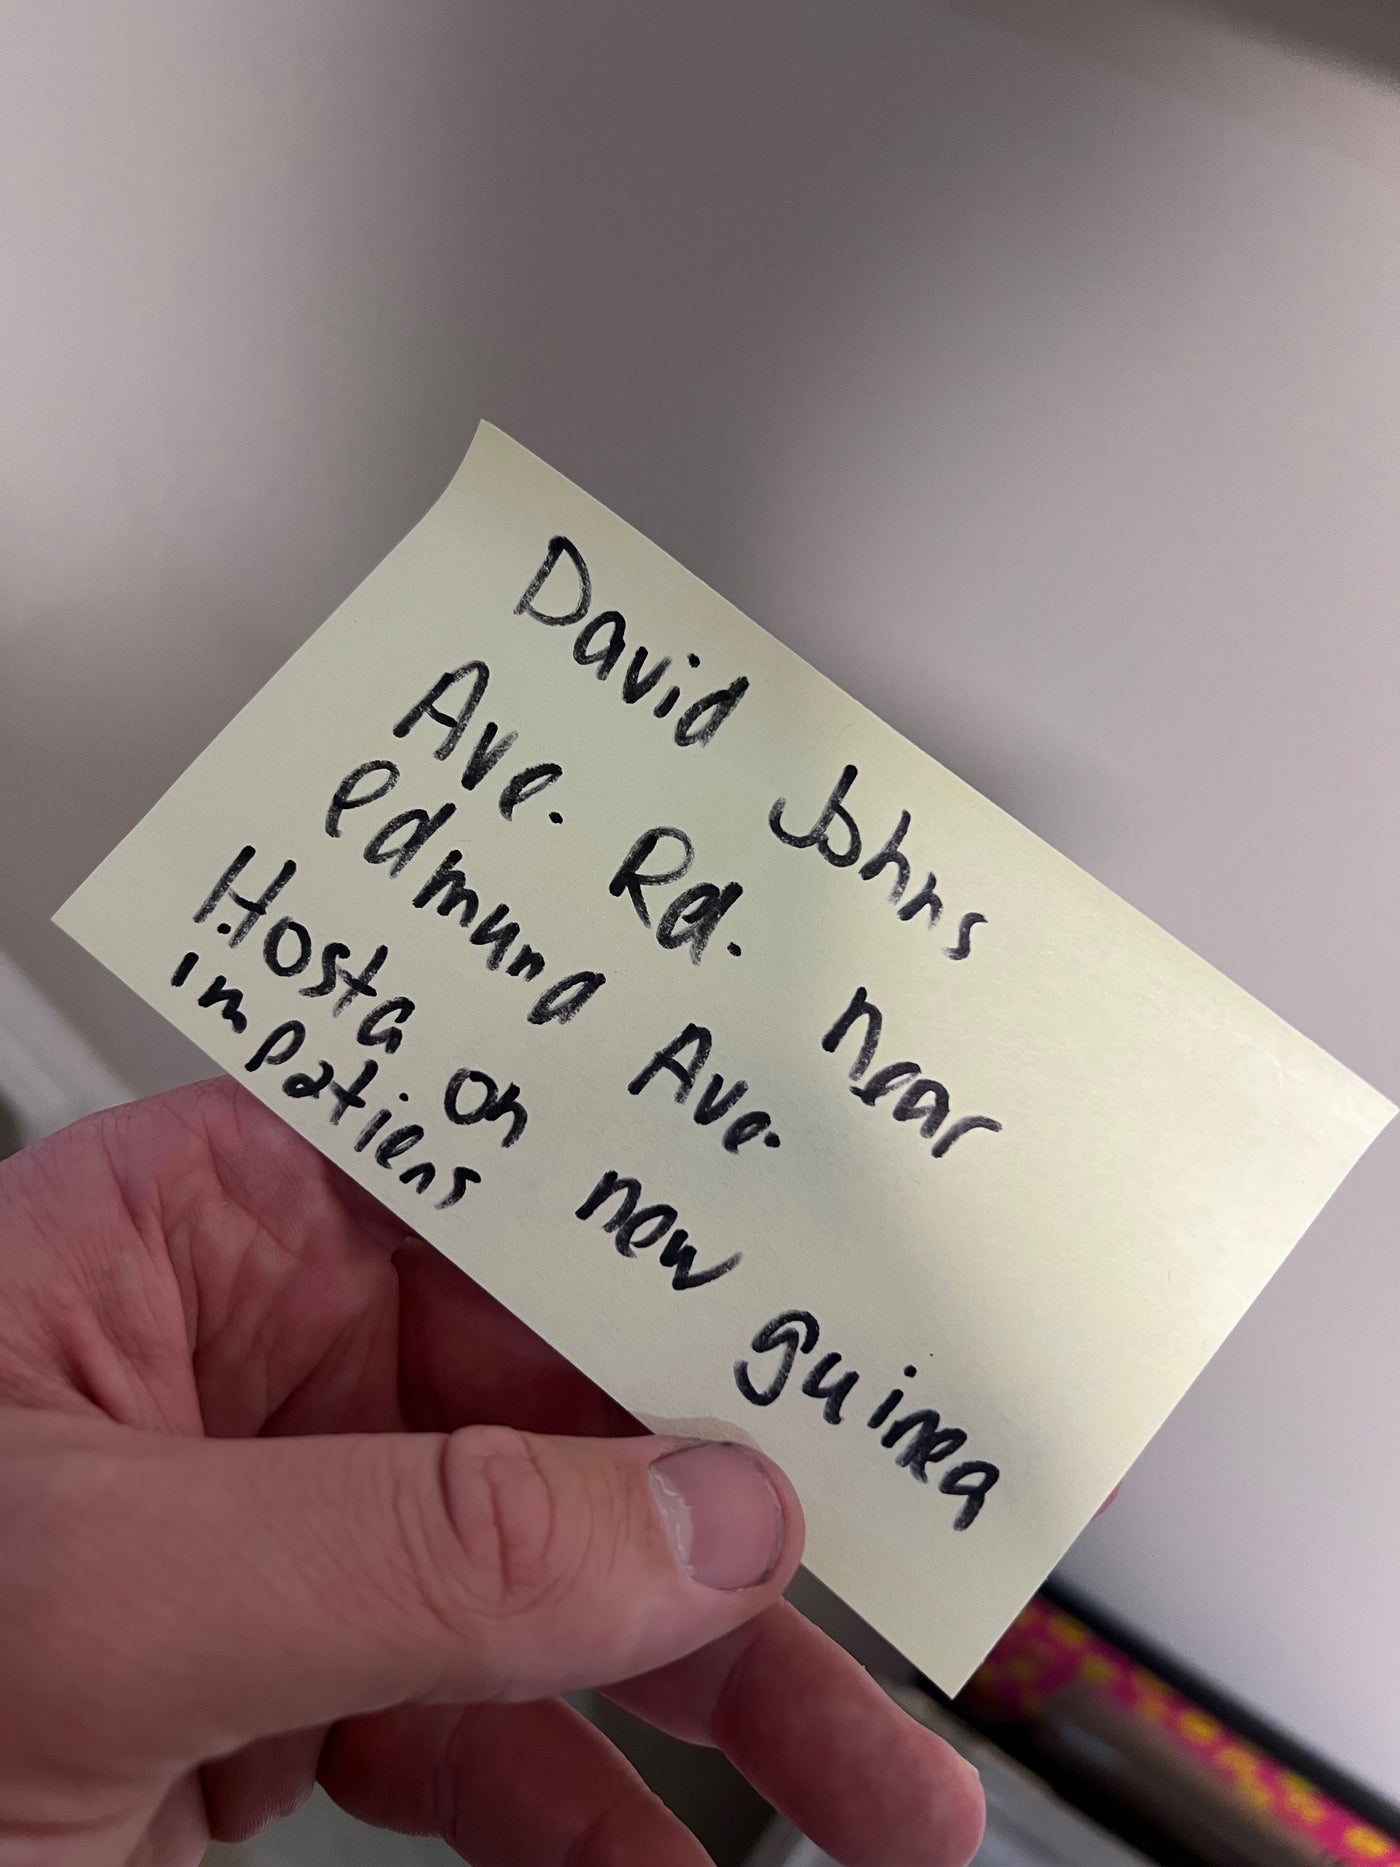 David Johns
Ave. Rd. near
edmund Ave.
Hosta on new guinea
impatiens